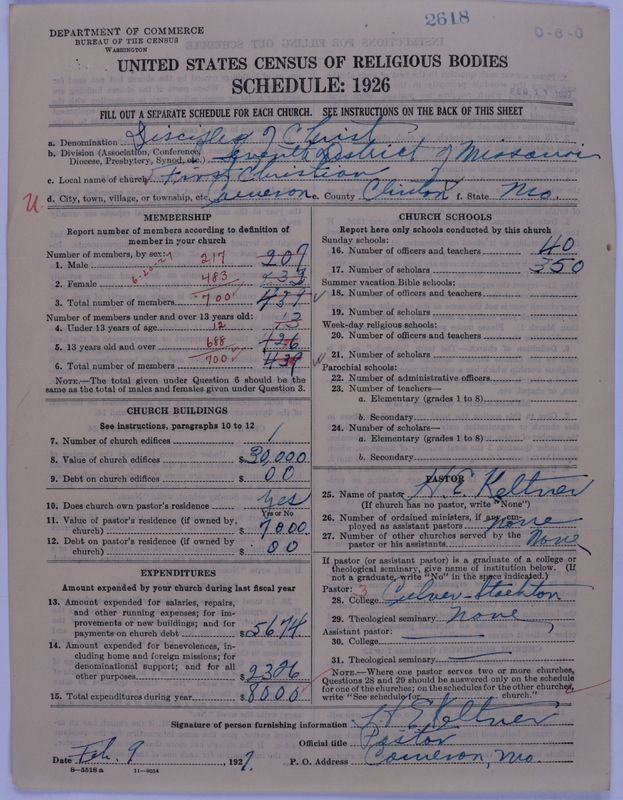 2618
DEPARTMENT OF COMMERCE
BUREAU OF THE CENSUS
WASHINGTON
UNITED STATES CENSUS OF RELIGIOUS BODIES
SCHEDULE: 1926
FILL OUT A SEPARATE SCHEDULE FOR EACH CHURCH. SEE INSTRUCTIONS ON THE BACK OF THIS SHEET
a. Denomination Disciples of Christ
b. Division (Association, Conference, Diocese, Presbytery, Synod, etc.) Seventh District of Missouri
c. Local name of church First Christian
U. d. City, town, village, or township, etc. Cameron e. County Clinton f. State Mo.
MEMBERSHIP
Report number of members according to definition of
member in your church
Number of members, by sex:
1. Male 217 207
6-22-27
2. Female 483
3. Total number of members 700
Number of members under and over 13 years old:
4. Under 13 years of age 12 13
5. 13 years old and over 688 426
6. Total number of members 700 439
NOTE.—The total given under Question 6 should be the
same as the total of males and females given under Question 3.
CHURCH BUILDINGS
See instructions, paragraphs 10 to 12
7. Number of church edifices 1
8. Value of church edifices $30,000
9. Debt on church edifices $00
10. Does church own pastor's residence Yes
Yes or No
11. Value of pastor's residence (if owned by
church) $7000
12. Debt on pastor's residence (if owned by
church) $00
EXPENDITURES
Amount expended by your church during last fiscal year
13. Amount expended for salaries, repairs,
and other running expenses; for im-
provements or new buildings; and for
payments on church debt $5674
14. Amount expended for benevolences, in-
cluding home and foreign missions; for
denominational support; and for all
other purposes $2326
15. Total expenditures during year $8000
CHURCH SCHOOLS
Report here only schools conducted by this church
Sunday schools:
16. Number of officers and teachers 40
17. Number of scholars 350
Summer vacation Bible schools:
18. Number of officers and teachers
19. Number of scholars
Week-day religious schools:
20. Number of officers and teachers
21. Number of scholars
Parochial schools:
22. Number of administrative officers
23. Number of teachers—
a. Elementary (grades 1 to 8)
b. Secondary
24. Number of scholars—
a. Elementary (grades 1 to 8)
b. Secondary
PASTOR
25. Name of pastor H. E. Keltner
(If church has no pastor, write "None")
26. Number of ordained ministers, if any, em-
ployed as assistant pastors none
27. Number of other churches served by the
pastor or his assistants None
If pastor (or assistant pastor) is a graduate of a college or
theological seminary, give name of institution below. (If
not a graduate, write "No" in the space indicated.)
Pastor: 3
28. College Culver-Stockton
29. Theological seminary None
Assistant pastor:
30. College
31. Theological seminary
NOTE.—Where one pastor serves two or more churches,
Questions 28 and 29 should be answered only on the schedule
for one of the churches; on the schedules for the other churches,
write "See schedule for church."
Signature of person furnishing information H. E. Keltner
Official title Pastor
Date Feb. 9, 1927. P. O. Address Cameron, Mo.
8—5518 a 11—9054